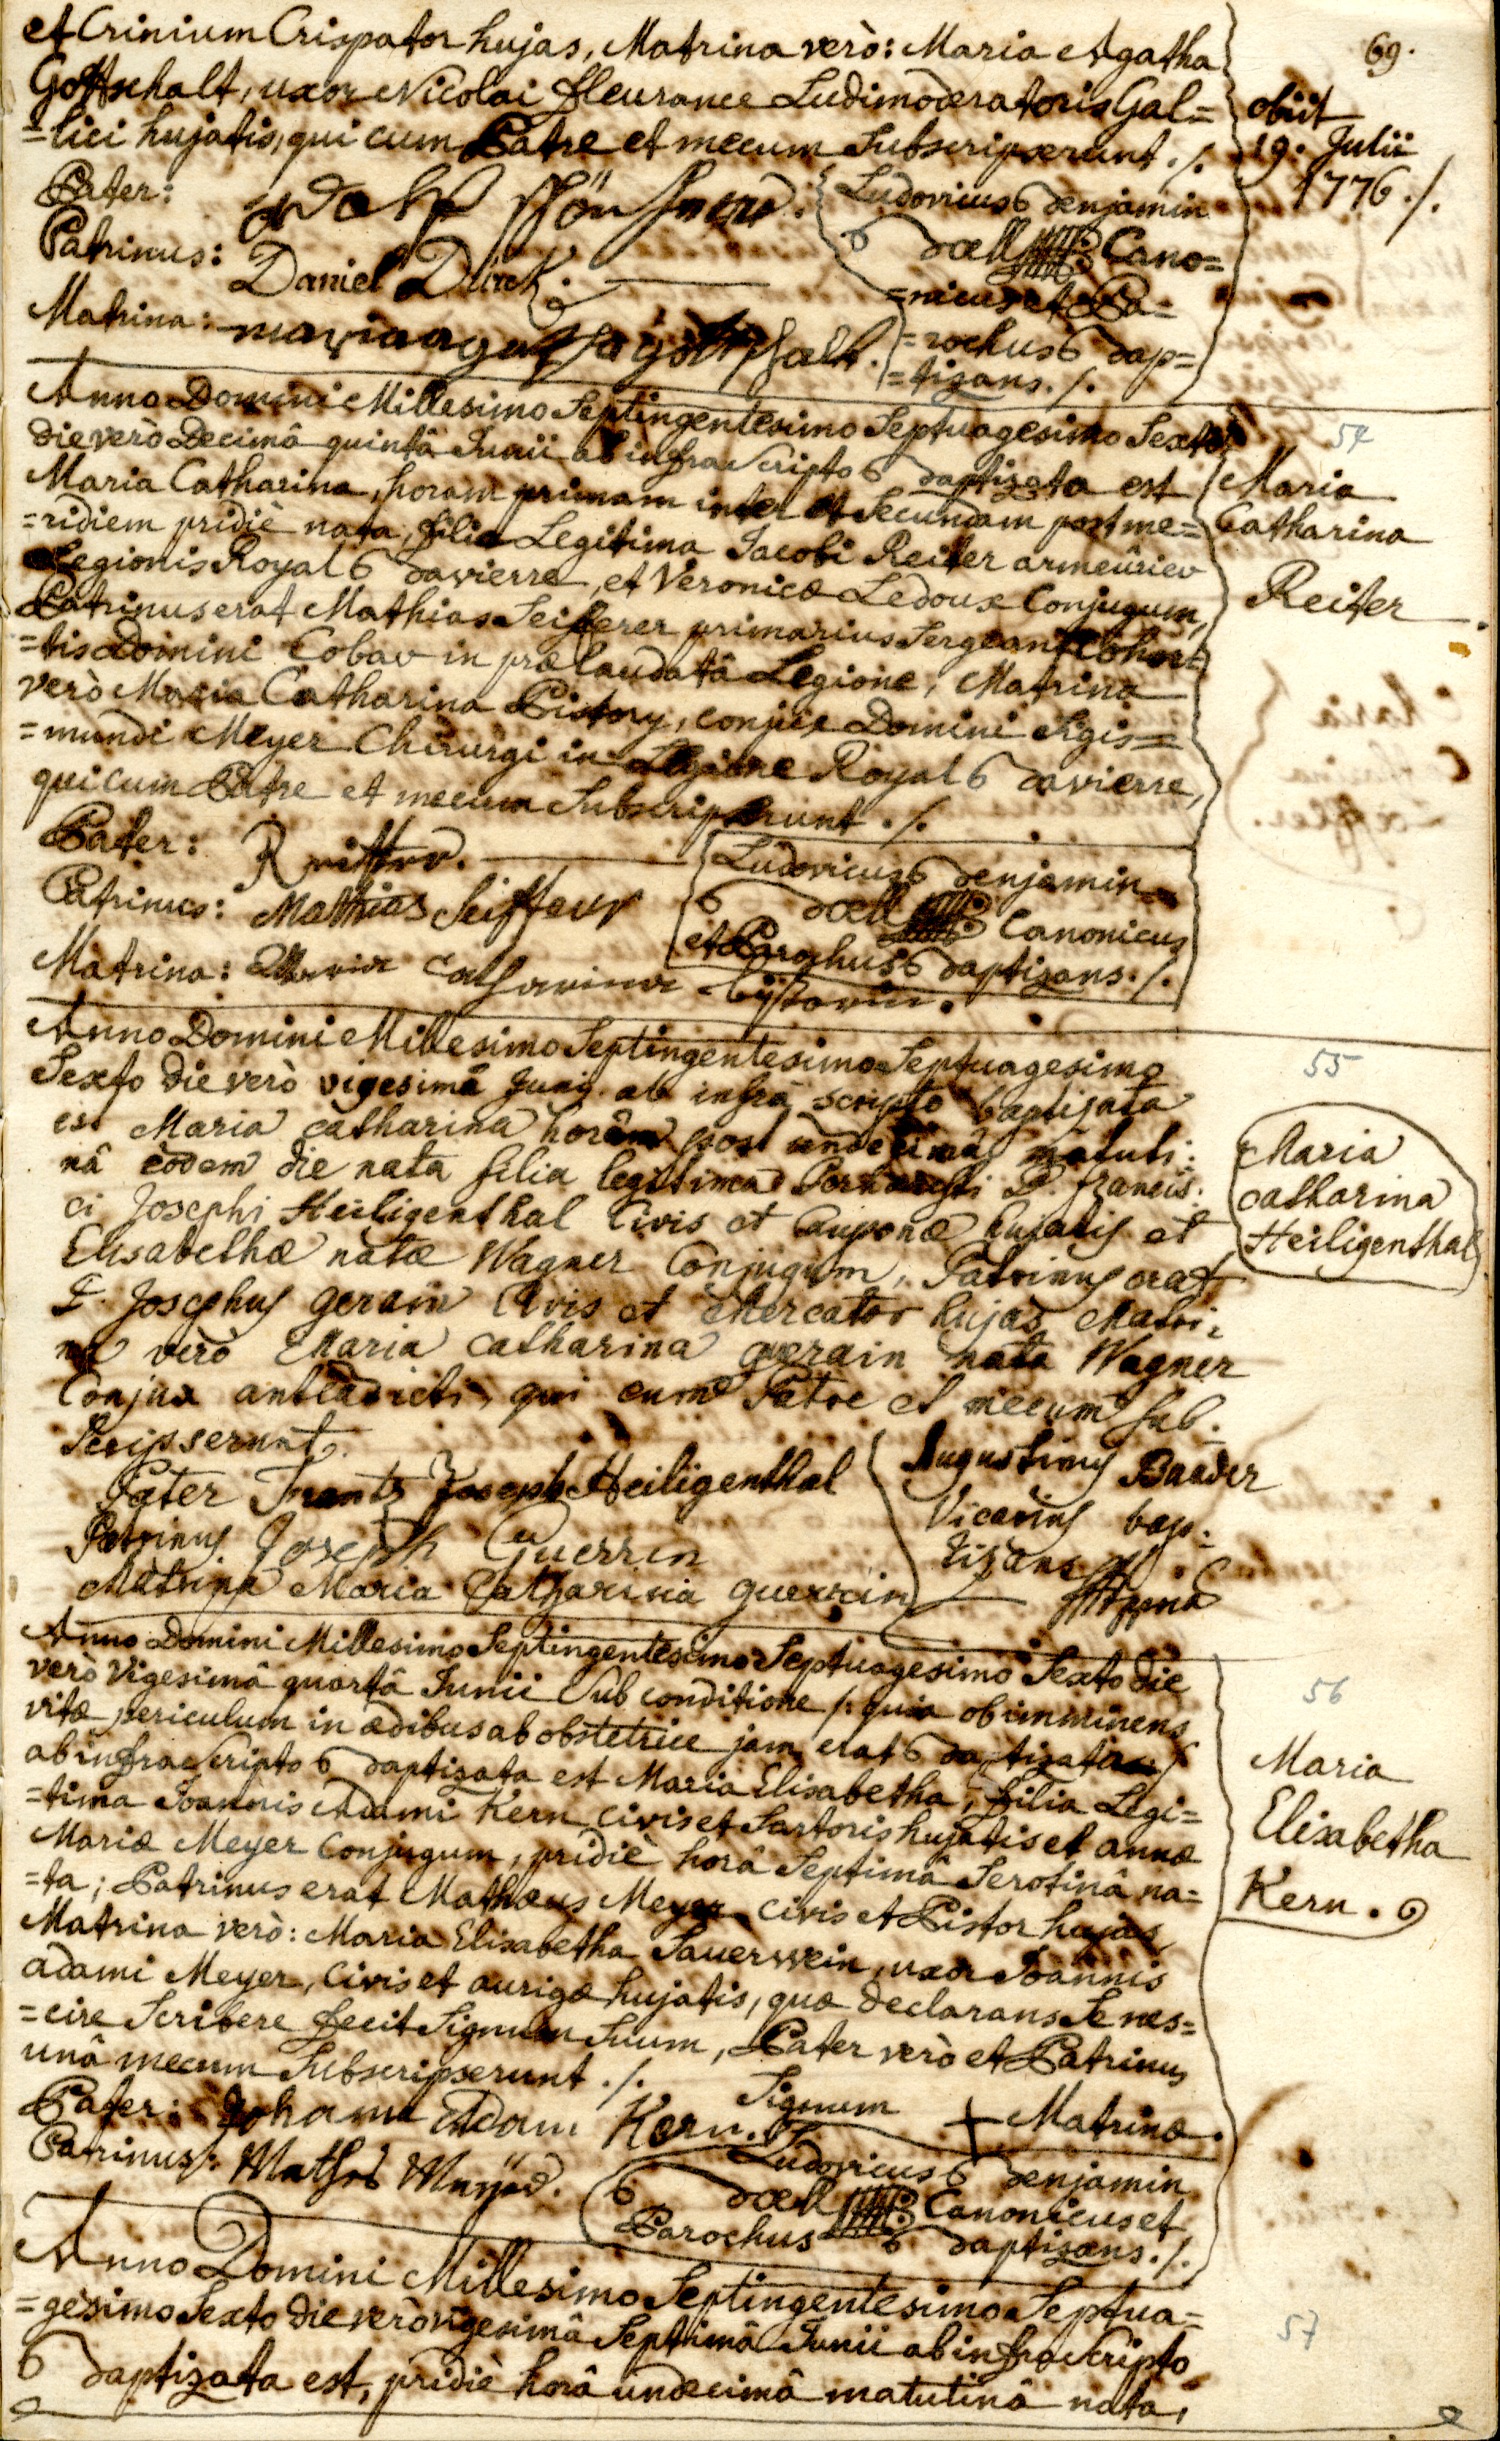 69.
et Crinium Crispator hujas, Matrina verò: Maria Agatha
Gottschalt, uxor Nicolai fleurance Ludimoderatoris Gal=
=lici hujatis, qui cum Patre et mecum Subscripserunt ./.
obiit
19. Julii
1776 ./.
Pater:
Patrinus: Daniel Dürck.
Matrina: maria agatha gottschalt.
Ludovicus Benjamin
Doell Cano=
=nicus et Pa=
=rochus Bap=
=tizans ./.
Anno Domini Millesimo Septingentesimo Septuagesimo Sexto
die verò Decimâ quintâ Junii ab infra Scripto Baptizata est
Maria Catharina, horam primam inter et Secundam post me=
=ridiem pridiè nata, filia Legitima Jacobi Reiter armeürier
Legionis Royal Bavierre, et Veronicæ Ledoux Conjugum,
Patrinus erat Mathias Seifferer primarius Sergeant Cohor=
=tis Domini Cobav in prælaudatâ Legione, Matrina
verò Maria Catharina Pistory, conjux Domini Sigis=
=mundi Meyer Chirurgi in Legione Royal Bavierre,
qui cum Patre et mecum Subscripserunt ./.
54
Maria
Catharina
Reiter.
Pater: Reitter.
Patrinus: Mathias Seifferer
Matrina: Maria Catharina
Ludovicus Benjamin
Doell Canonicus
et Parochus Baptizans ./.
Anno Domini Millesimo Septingentesimo Septuagesimo
Sexto die verò vigesimâ Junij ab infrà scripto baptizata
est Maria catharina horâm post undecimâ matuti:
nâ eôdem die nata filia legitima D. francis:
ci Josephi Heiligenthal Civis et Cauponæ hujatis et
Elisabethæ natæ Wagner Conjugum, Patrinus erat
D. Josephus gerain Civis et Mercator hujas, Matri:
na verò Maria catharina gerain nata Wagner
Conjux antedicti, qui cum Patre et mecum sub:
Scripserunt.
55
Maria
catharina
Heiligenthal
Pater Frantz Joseph Heiligenthal
Patrinus Joseph Guerrin
Matrina Maria Catharina guerrin
Augustinus Baader
Vicarius bap:
tizans
Anno Domini Millesimo Septingentesimo Septuagesimo Sexto die
verò Vigesimâ quartâ Junii Sub conditione /: quia ob imminens
vitæ periculum in ædibus ab obstetrice jam erat Baptizata :/
ab infra Scripto Baptizata est Maria Elisabetha, filia Legi=
=tima Joannis Adami Kern civis et Sartoris hujatis et annæ
Mariæ Meyer Conjugum, pridiè horâ Septimâ Serotinâ na=
=ta; Patrinus erat Mathæus Meyer civis et Pistor hujas,
Matrina verò: Maria Elisabetha Sauerwein, uxor Joannis
adami Meyer, Civis et aurigæ hujatis, quæ declarans Se nes=
=cire Scribere fecit Signum Suum, Pater verò et Patrinus
unâ mecum Subscripserunt ./.
56
Maria
Elisabetha
Kern.
Pater: Johann Adam Kern.
Signum + Matrinæ.
Patrinus:
Ludovicus Benjamin
Doell Canonicus et
Parochus Baptizans ./.
Anno Domini Millesimo Septingentesimo Septua=
=gesimo Sexto die verò vigesimâ Septimâ Junii ab infra Scripto
Baptizata est, pridiè horâ undecimâ matutinâ nata,
57